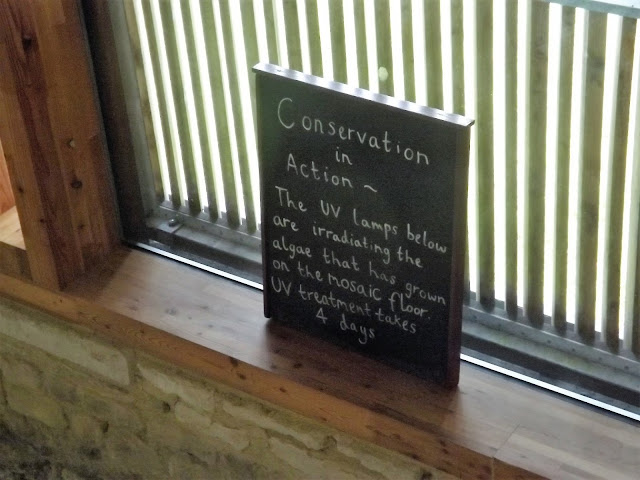 Conservation
in
Action ~
The UV lamps below
are irradiating the
algae that has grown
on the mosaic floor.
UV treatment takes
4 days